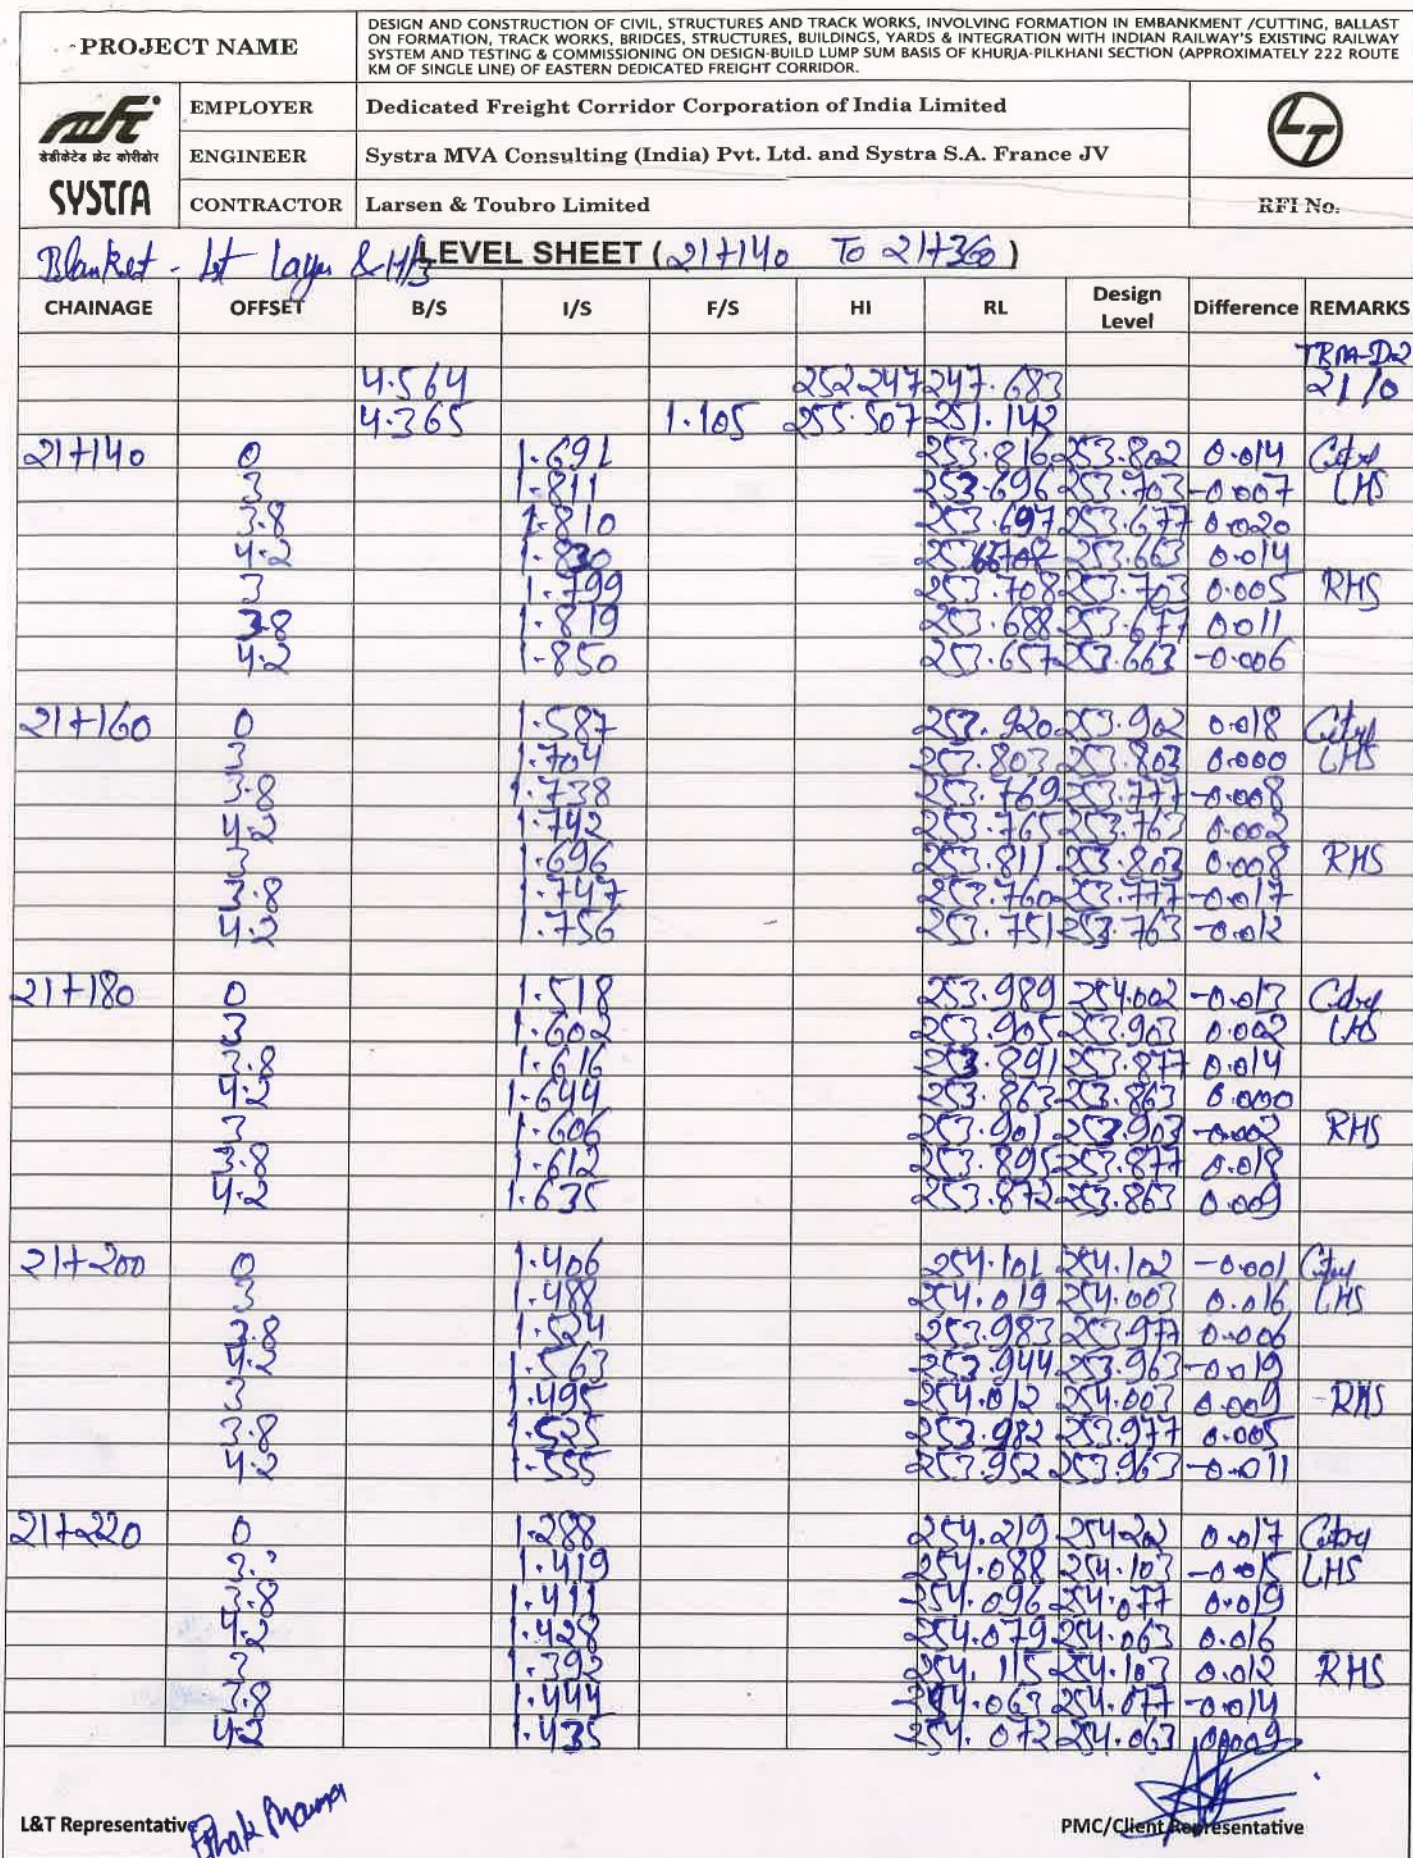 PROJECT NAME
DESIGN AND CONSTRUCTION OF CIVIL, STRUCTURES AND TRACK WORKS, INVOLVING FORMATION IN EMBANKMENT /CUTTING, BALLAST
ON FORMATION, TRACK WORKS, BRIDGES, STRUCTURES, BUILDINGS, YARDS & INTEGRATION WITH INDIAN RAILWAY'S EXISTING RAILWAY
SYSTEM AND TESTING & COMMISSIONING ON DESIGN-BUILD LUMP SUM BASIS OF KHURJA-PILKHANI SECTION (APPROXIMATELY 222 ROUTE
KM OF SINGLE LINE) OF EASTERN DEDICATED FREIGHT CORRIDOR.
डेडीकेटेड फ्रेट कोरीडोर
SYSTRA
EMPLOYER Dedicated Freight Corridor Corporation of India Limited
ENGINEER Systra MVA Consulting (India) Pvt. Ltd. and Systra S.A. France JV
CONTRACTOR Larsen & Toubro Limited
LT
RFI No.
Blanket - 1st Layer &
LEVEL SHEET (21+140 To 21+360)
CHAINAGE OFFSET B/S I/S F/S HI RL Design Level Difference REMARKS
TBM-D-2
4.564 252.247 247.683 21/0
4.365 1.105 255.507 251.142
21+140 0 1.691 253.816 253.802 0.014
3 1.811 253.696 253.703 -0.007 LHS
3.8 1.810 253.697 253.677 0.020
4.2 1.830 253.663 0.014
3 1.799 253.708 253.703 0.005 RHS
3.8 1.819 253.688 253.677 0.011
4.2 1.850 253.657 253.663 -0.006
21+160 0 1.587 253.920 253.902 0.018
3 1.704 253.803 253.803 0.000 LHS
3.8 1.738 253.769 253.777 -0.008
4.2 1.742 253.765 253.763 0.002
3 1.696 253.811 253.803 0.008 RHS
3.8 1.747 253.760 253.777 -0.017
4.2 1.756 253.751 253.763 -0.012
21+180 0 1.518 253.989 254.002 -0.013
3 1.602 253.905 253.903 0.002 LHS
3.8 1.616 253.891 253.877 0.014
4.2 1.644 253.863 253.863 0.000
3 1.606 253.901 253.903 -0.002 RHS
3.8 1.612 253.895 253.877 0.018
4.2 1.635 253.872 253.863 0.009
21+200 0 1.406 254.101 254.102 -0.001
3 1.488 254.019 254.003 0.016 LHS
3.8 1.524 253.983 253.977 0.006
4.2 1.563 253.944 253.963 -0.019
3 1.495 254.012 254.003 0.009 RHS
3.8 1.525 253.982 253.977 0.005
4.2 1.555 253.952 253.963 -0.011
21+220 0 1.288 254.219 254.202 0.017
3 1.419 254.088 254.103 -0.015 LHS
3.8 1.411 254.096 254.077 0.019
4.2 1.428 254.079 254.063 0.016
3 1.392 254.115 254.103 0.012 RHS
3.8 1.444 254.063 254.077 -0.014
4.2 1.435 254.072 254.063 0.009
L&T Representative
PMC/Client Representative